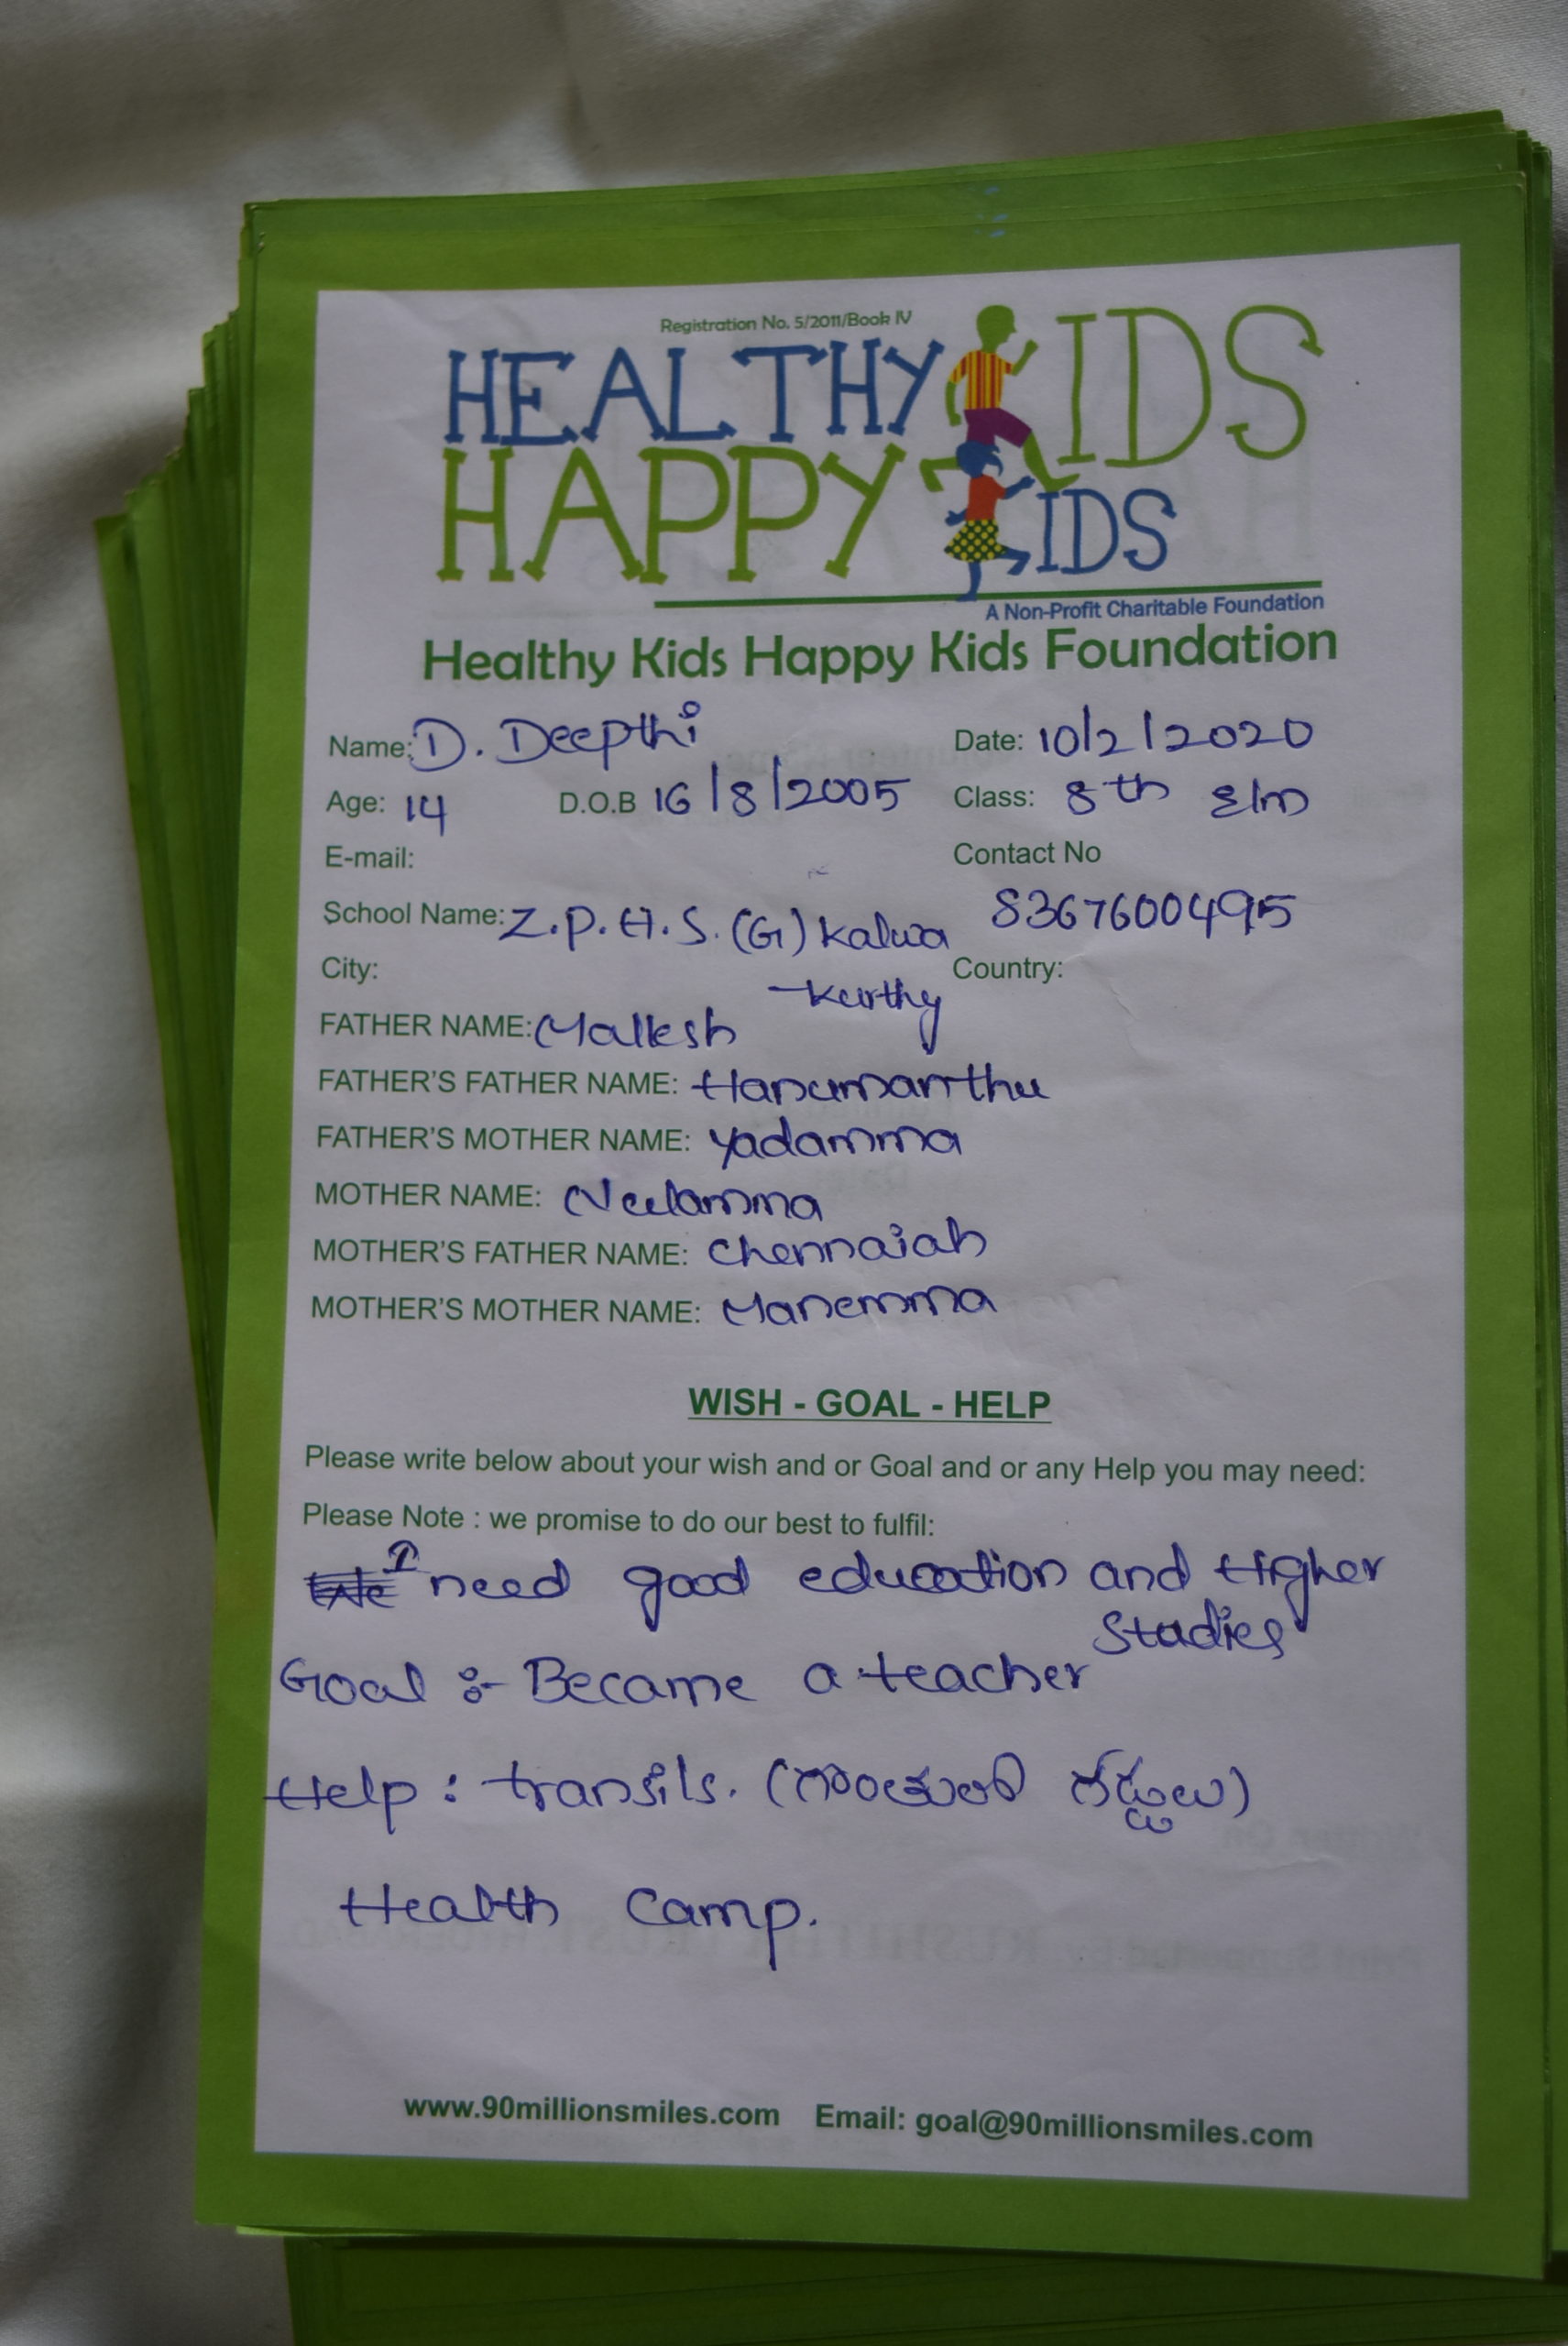 Registration No. 5/2011/Book IV
HEALTHY KIDS
HAPPY KIDS
A Non-Profit Charitable Foundation
Healthy Kids Happy Kids Foundation
Name: D. Deepthi Date: 10/2/2020
Age: 14 D.O.B 16/8/2005 Class: 8th E/m
E-mail: Contact No
School Name: Z.P.H.S. (G) Kalwa 8367600495
City: -Kurthy Country:
FATHER NAME: Mallesh
FATHER'S FATHER NAME: Hanumanthu
FATHER'S MOTHER NAME: Yadamma
MOTHER NAME: Neelamma
MOTHER'S FATHER NAME: Chennaiah
MOTHER'S MOTHER NAME: Manemma
WISH - GOAL - HELP
Please write below about your wish and or Goal and or any Help you may need:
Please Note : we promise to do our best to fulfil:
I need good education and Higher
Studies
Goal :- Became a teacher
Help : transils. (గొంతులో గడ్డలు)
Health Camp.
www.90millionsmiles.com Email: goal@90millionsmiles.com